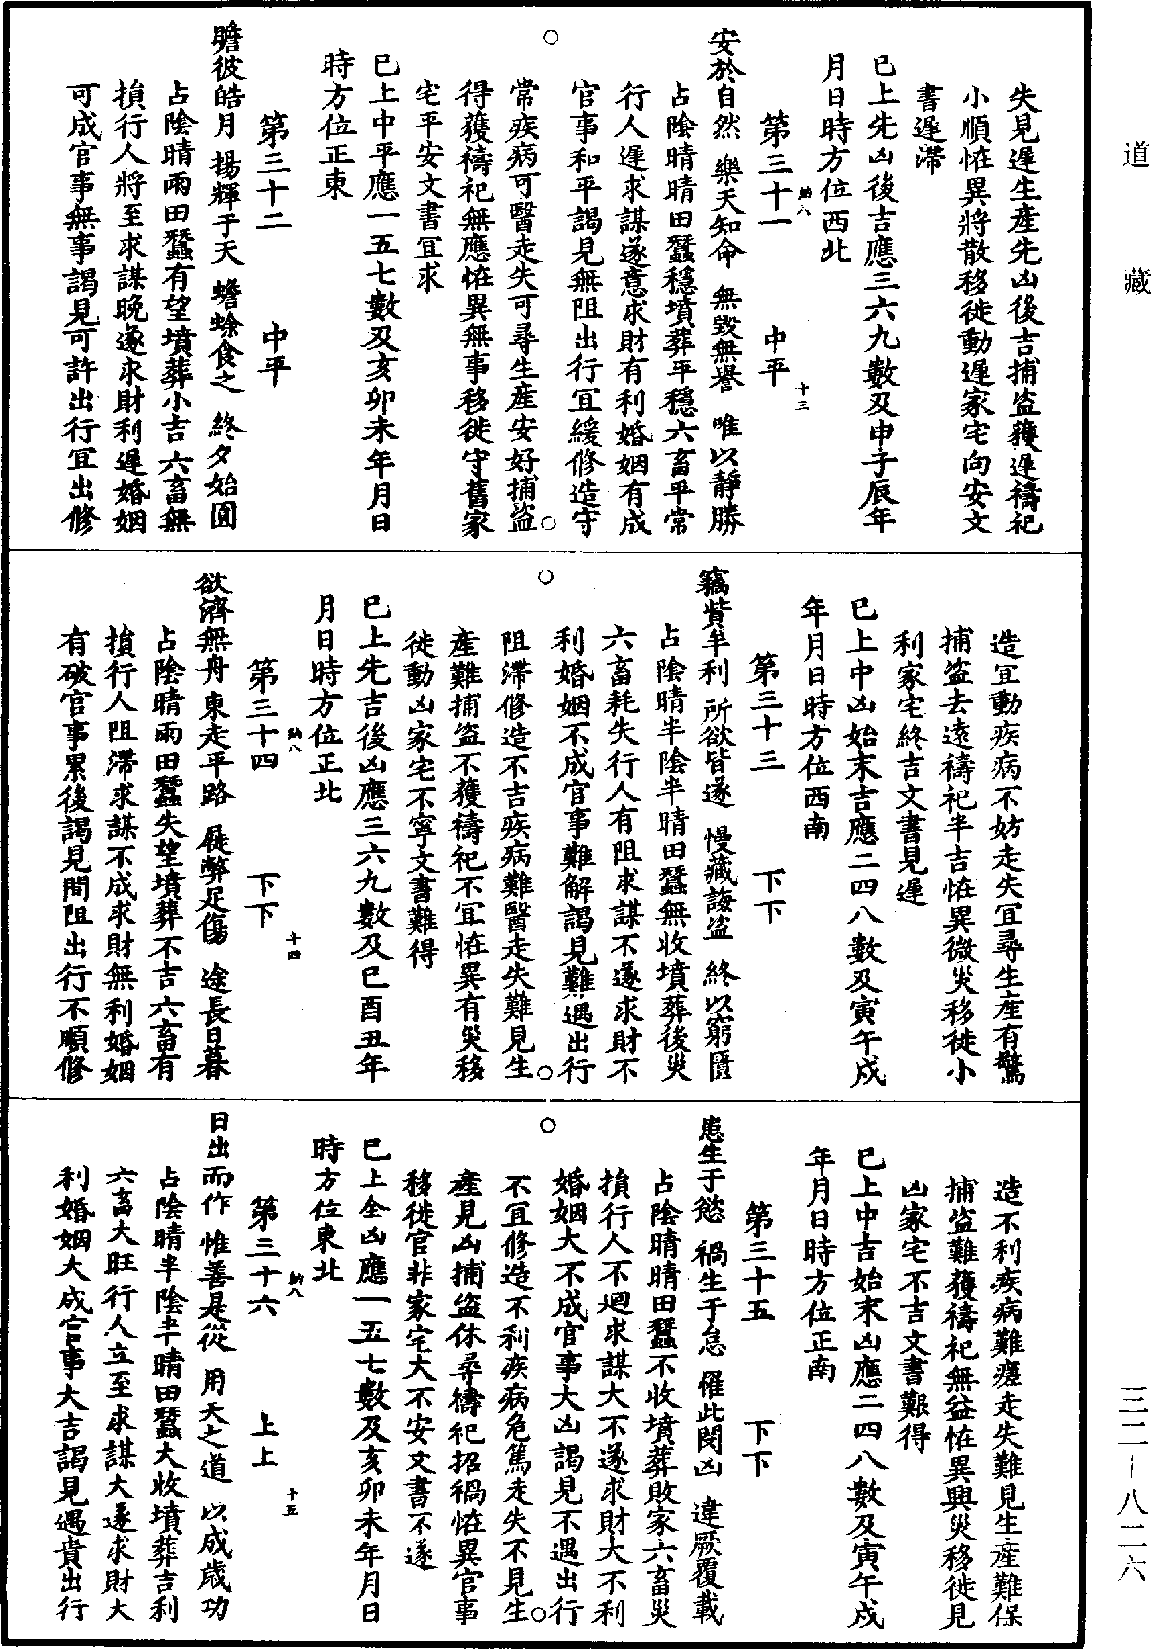 道藏
失見遲生產先凶後吉捕盜獲遲禱祀
小順恠異將散移徙動遲家宅向安文
書遲滯
已上先凶後吉應三六九數及申子辰年
月日時方位西北
第三十一　中平
納八　十三
安於自然　樂天知命　無毀無譽　唯以靜勝
占陰晴晴田蠶穩墳葬平穩六畜平常
行人遲求謀遂意求財有利婚姻有成
官事和平謁見無阻出行宜緩修造守
常疾病可醫走失可尋生產安好捕盜
得獲禱祀無應恠異無事移徙守舊家
宅平安文書宜求
已上中平應一五七數及亥卯未年月日
時方位正東
第三十二　中平
瞻彼皓月　揚輝于天　蟾蜍食之　終夕始圓
占陰晴雨田蠶有望墳葬小吉六畜無
損行人將至求謀晚遂求財利遲婚姻
可成官事無事謁見可許出行宜出修
造宜動疾病不妨走失宜尋生產有驚
捕盜去遠禱祀半吉恠異微災移徙小
利家宅終吉文書見遲
已上中凶始末吉應二四八數及寅午戌
年月日時方位西南
第三十三　下下
竊貲牟利　所欲皆遂　慢藏誨盜　終以窮匱
占陰晴半陰半晴田蠶無收墳葬後災
六畜耗失行人有阻求謀不遂求財不
利婚姻不成官事難解謁見難遇出行
阻滯修造不吉疾病難醫走失難見生
產難捕盜不獲禱祀不宜恠異有災移
徙動凶家宅不寧文書難得
已上先吉後凶應三六九數及巳酉丑年
月日時方位正北
第三十四　下下
納八　十四
欲濟無舟　東走平路　屣弊足傷　途長日暮
占陰晴雨田蠶失望墳葬不吉六畜有
損行人阻滯求謀不成求財無利婚姻
有破官事累後謁見間阻出行不順修
造不利疾病難瘥走失難見生產難保
捕盜難獲禱祀無益恠異興災移徙見
凶家宅不吉文書艱得
已上中吉始末凶應二四八數及寅午戌
年月日時方位正南
第三十五　下下
患生于慾　禍生于怠　罹此閔凶　違厥覆載
占陰晴晴田蠶不收墳葬敗家六畜災
損行人不迴求謀大不遂求財大不利
婚姻大不成官事大凶謁見不遇出行
不宜修造不利疾病危篤走失不見生
產見凶捕盜休尋禱祀招禍恠異官事
移徙官非家宅大不安文書不遂
已上全凶應一五七數及亥卯未年月日
時方位東北
第三十六　上上
納八　十五
日出而作　惟善是從　用天之道　以成歲功
占陰晴半陰半晴田蠶大收墳葬吉利
六畜大旺行人立至求謀大遂求財大
利婚姻大成官事大吉謁見遇貴出行
三二—八二六